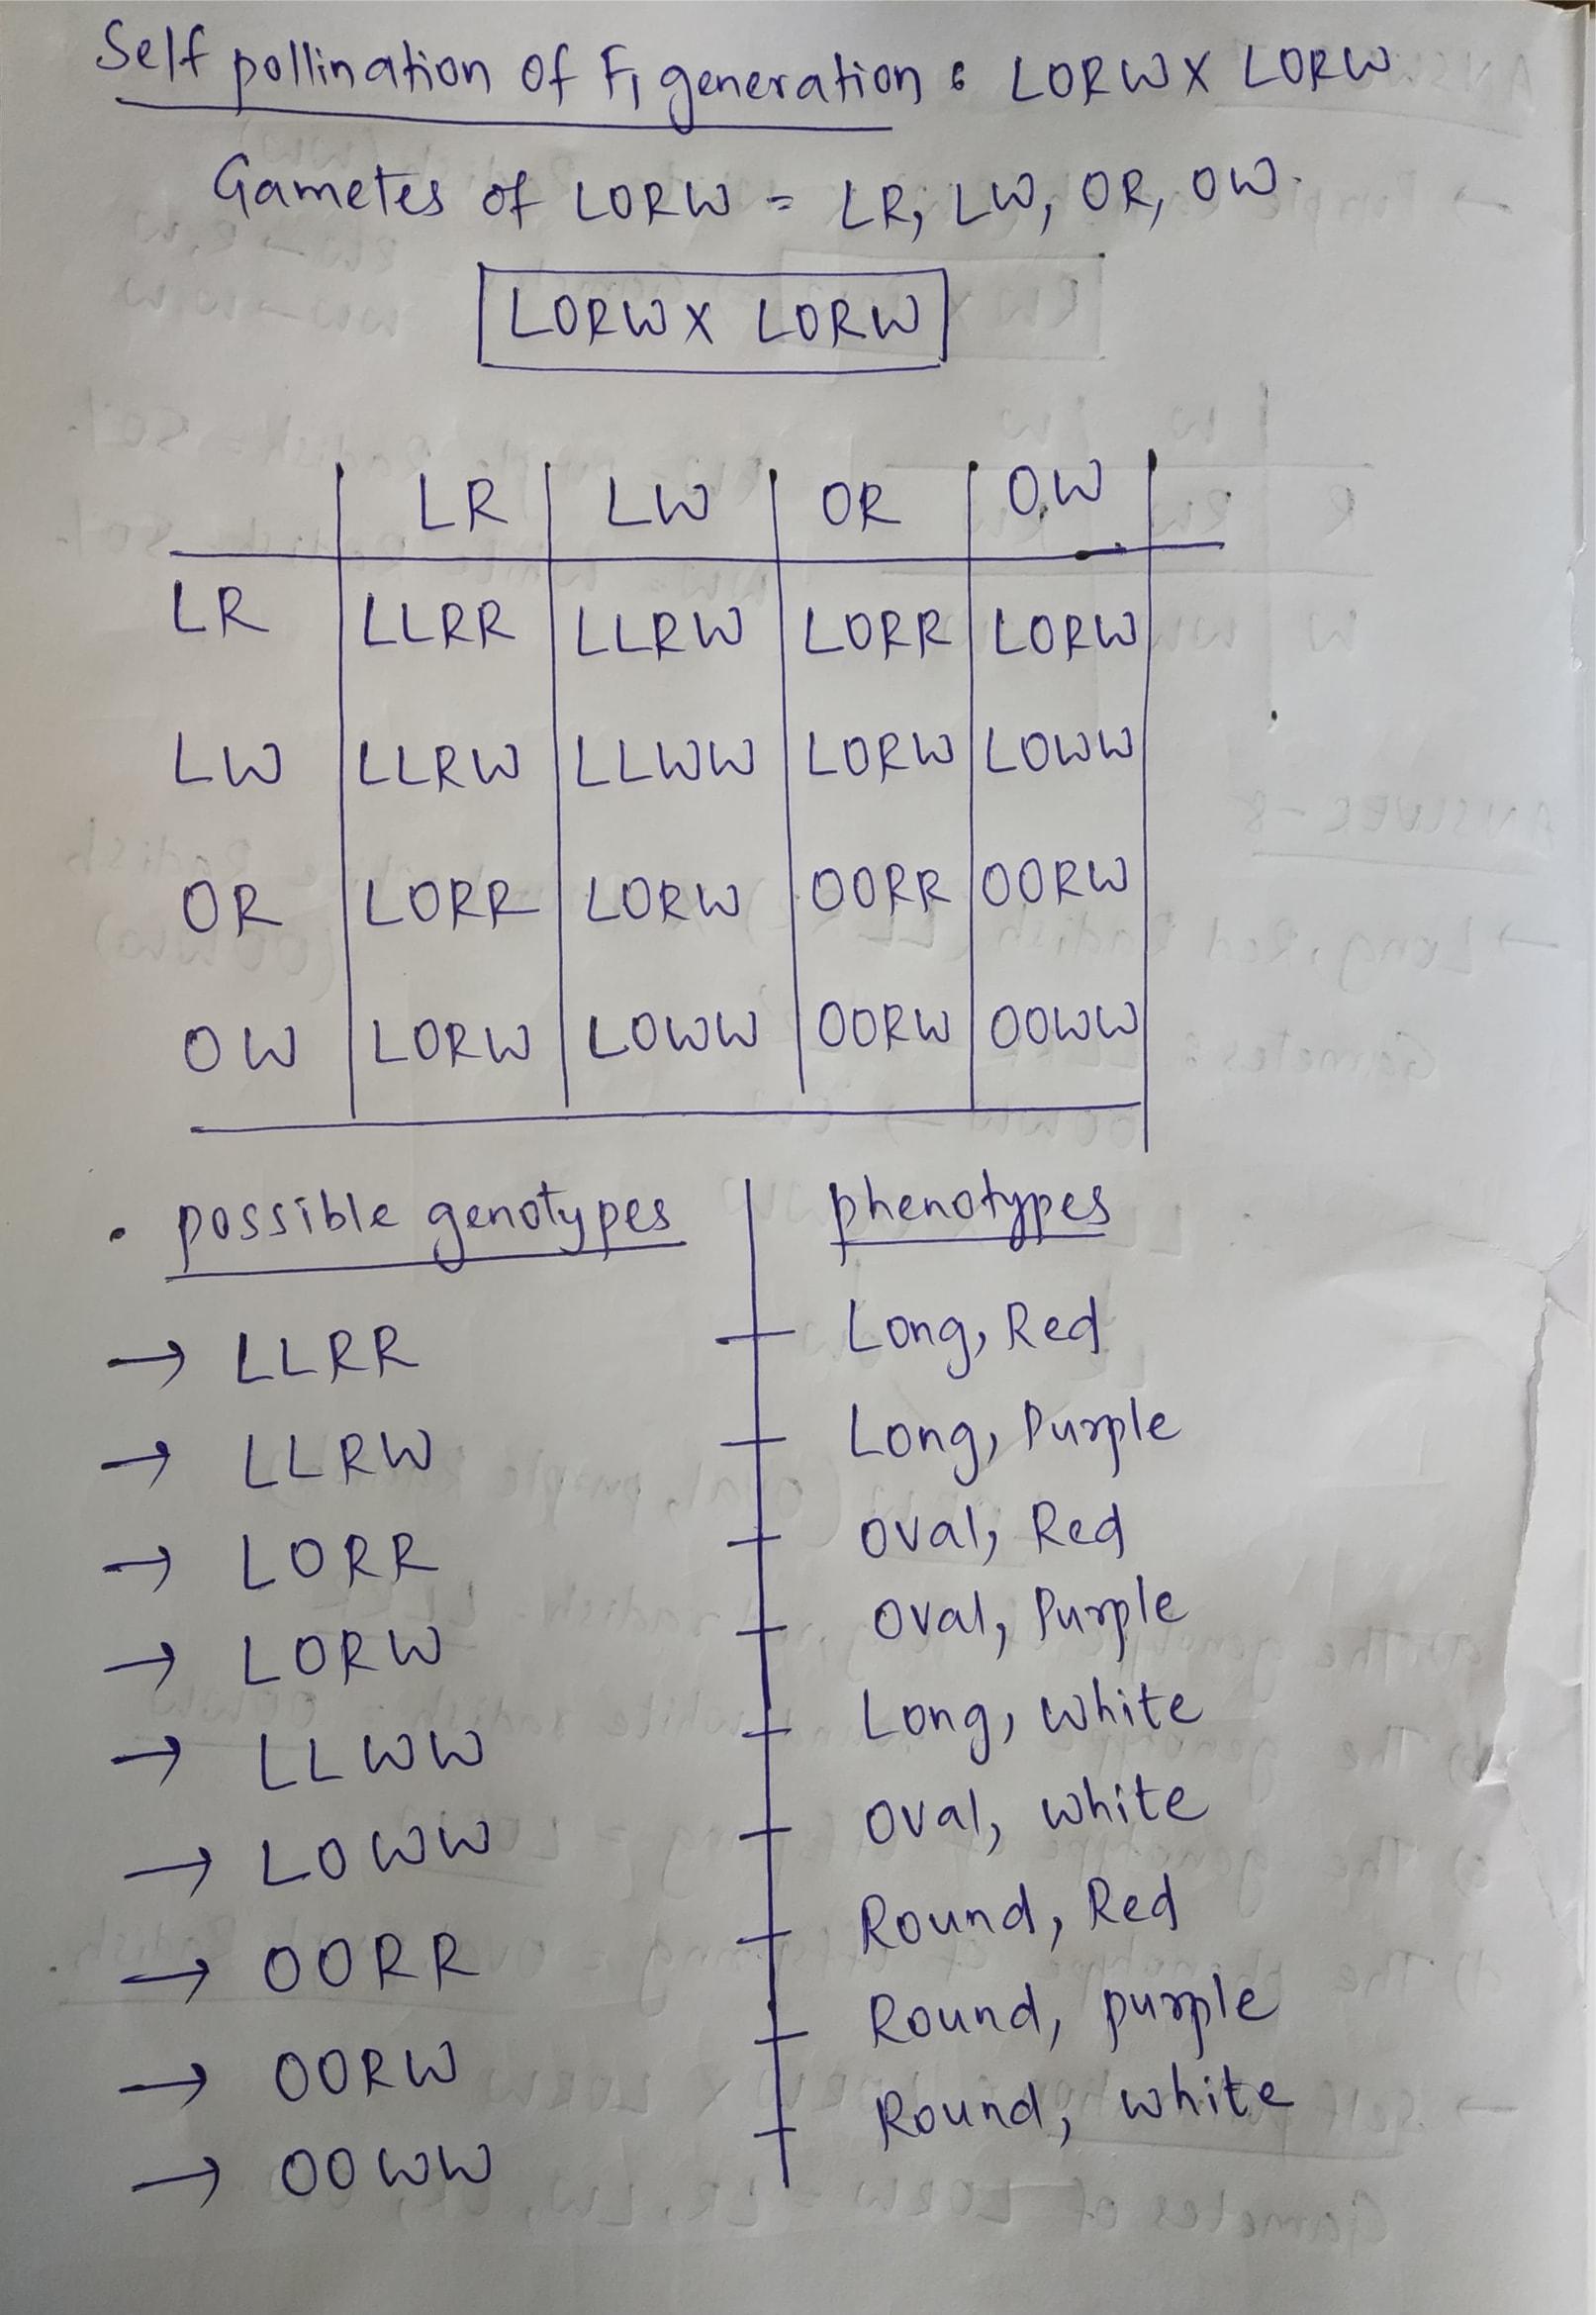 Self pollination of F1 generation : LORW X LORW
Gametes of LORW = LR, LW, OR, OW.
LORW X LORW
LR LW OR OW
LR LLRR LLRW LORR LORW
LW LLRW LLWW LORW LOWW
OR LORR LORW OORR OORW
OW LORW LOWW OORW OOWW
• possible genotypes phenotypes
→ LLRR Long, Red
→ LLRW Long, Purple
→ LORR Oval, Red
→ LORW Oval, Purple
→ LLWW Long, white
→ LOWW Oval, white
→ OORR Round, Red
→ OORW Round, purple
→ OOWW Round, white